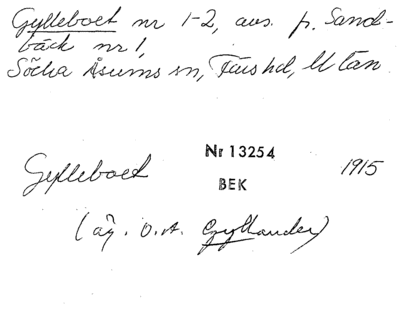 Gylleboet nr 1-2, avs. p. Sand-
bäck nr 1,
Södra Åsums sn, Färs hd, M län
Gylleboet Nr 13254 1915
BEK
(äg. O.A. Gyllander)